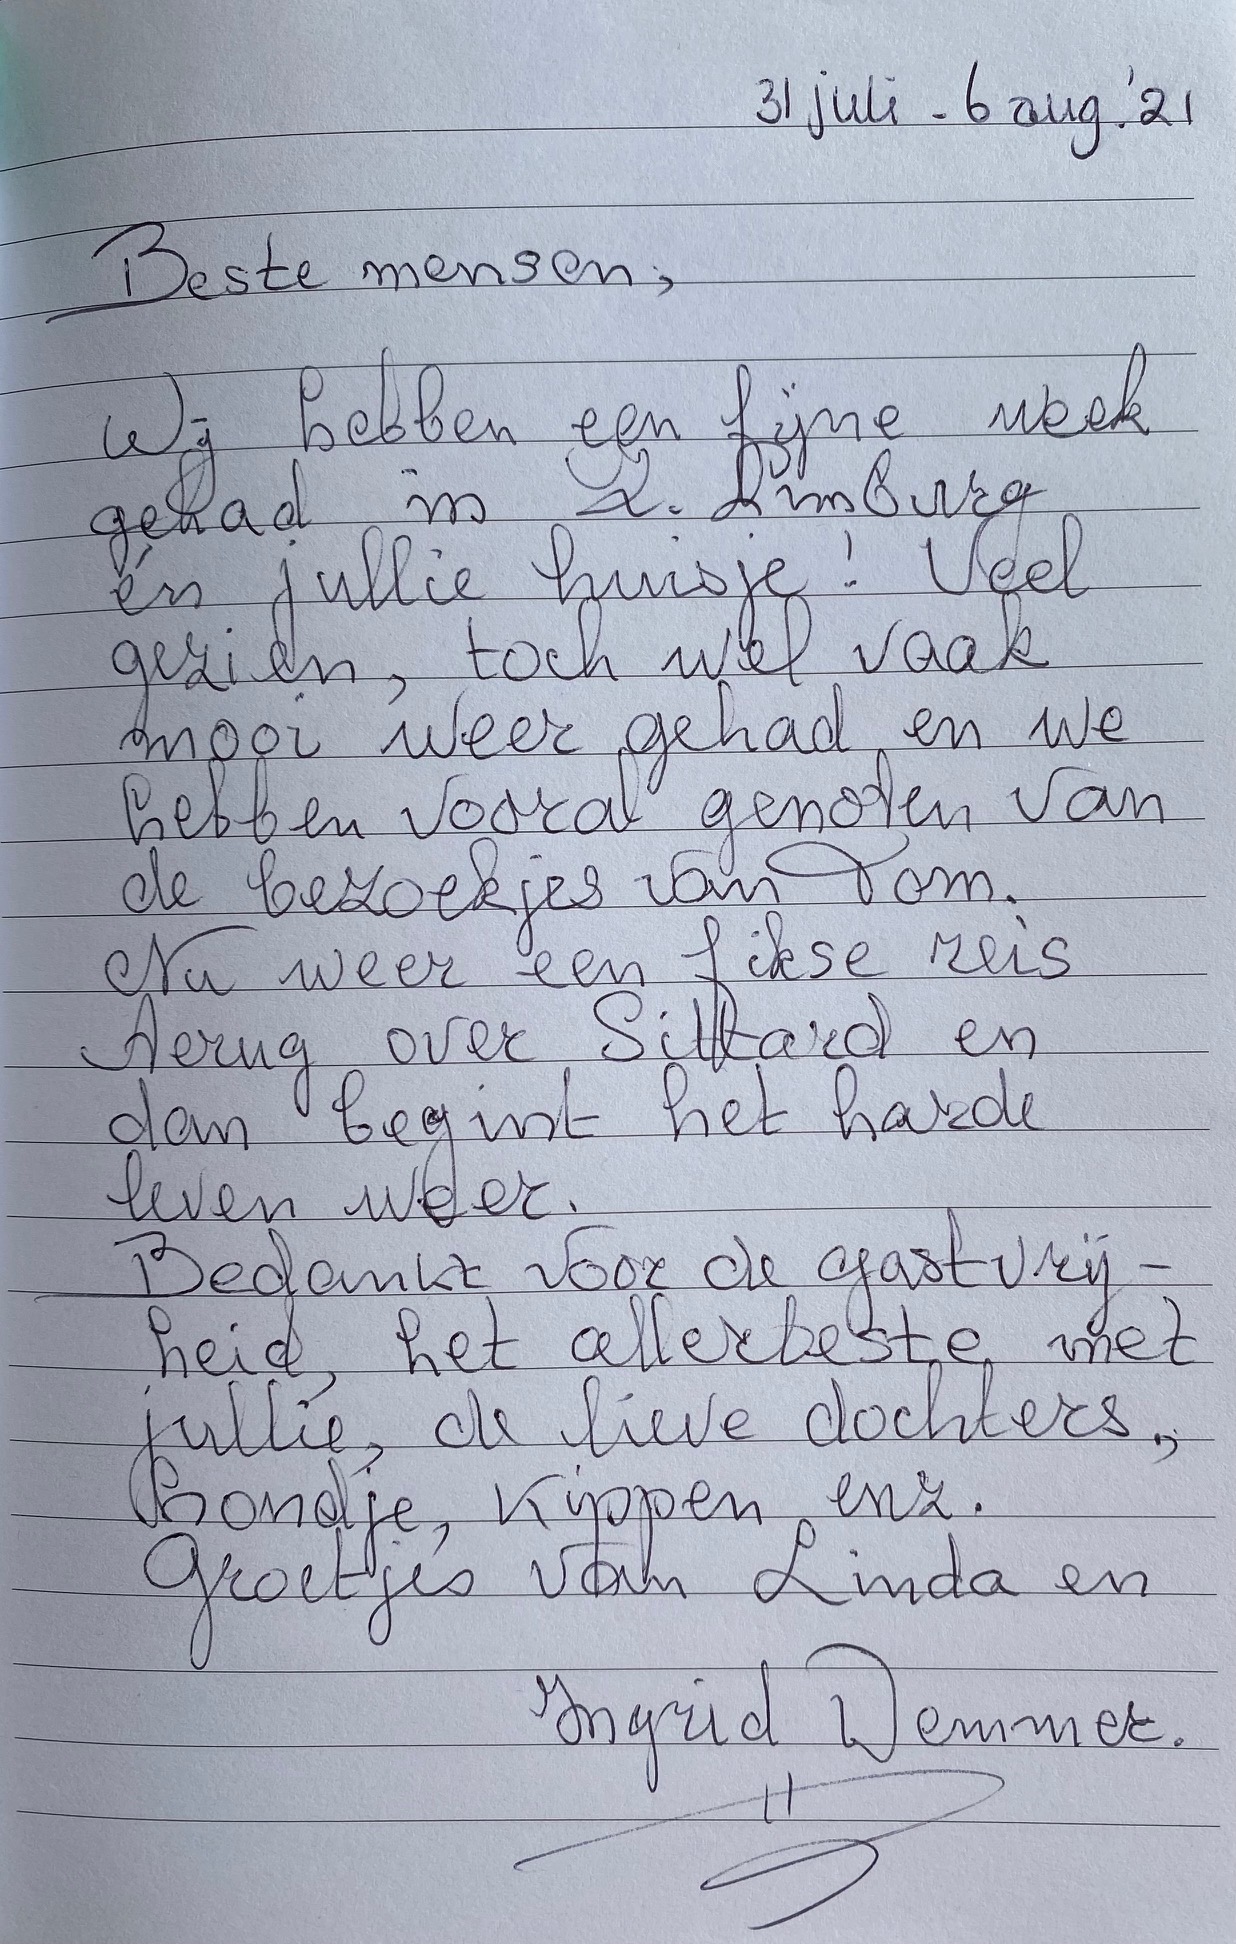 31 juli - 6 aug. '21
Beste mensen,
Wij hebben een fijne week
gehad in Z. Limburg
én jullie huisje! Veel
gezien, toch wel vaak
mooi weer gehad en we
hebben vooral genoten van
de bezoekjes van Tom.
Nu weer een fikse reis
terug over Sittard en
dan begint het harde
leven weer.
Bedankt voor de gastvrij-
heid, het allerbeste met
jullie, de lieve dochters,
hondje, kippen enz.
Groetjes van Linda en
Ingrid Demmer.